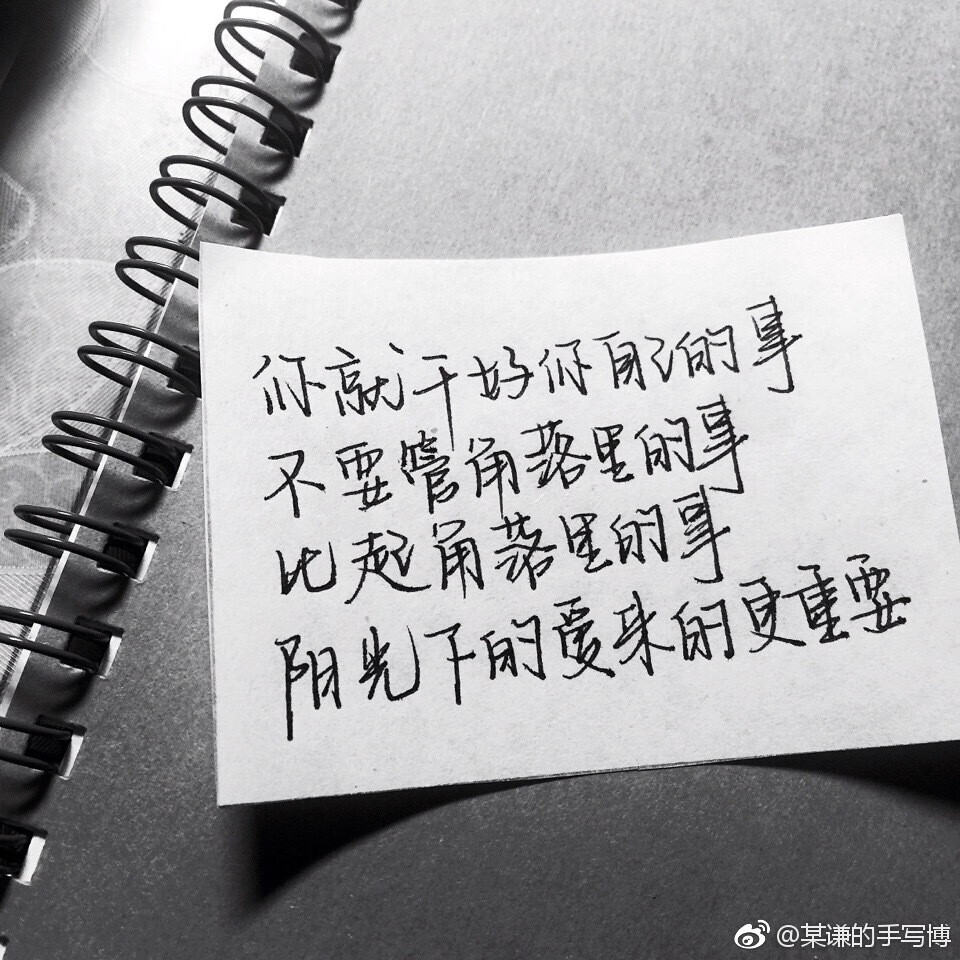 你就干好你自己的事
不要管角落里的事
比起角落里的事
阳光下的爱来的更重要
@某谦的手写博